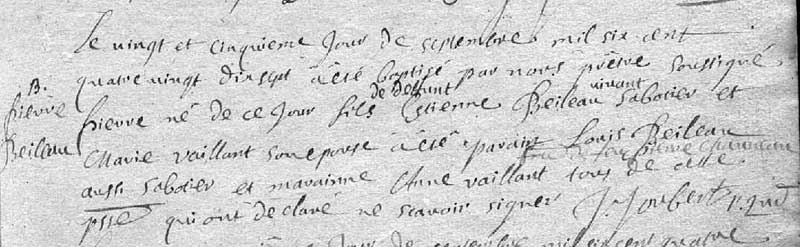 Le vingt et cinquieme Jour de septembre mil six cent
quatre vingt dixsept a été baptisé par nous prêtre soussigné
B.
pierre
Beileau
de deffunt vivant
pierre né de ce Jour fils Estienne Beileau sabotier et
Marie vaillant son epouse a été parain Louis Beileau
aussi sabotier et marainne Anne vaillant tous de cette
psse qui ont declaré ne scavoir signer J. Joubert
Jour de septembre mil six cent quatre